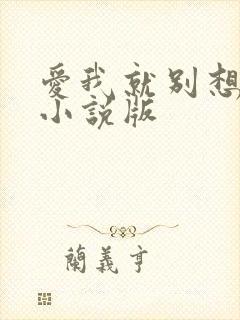 愛我就别想
小说版
蘭義亨